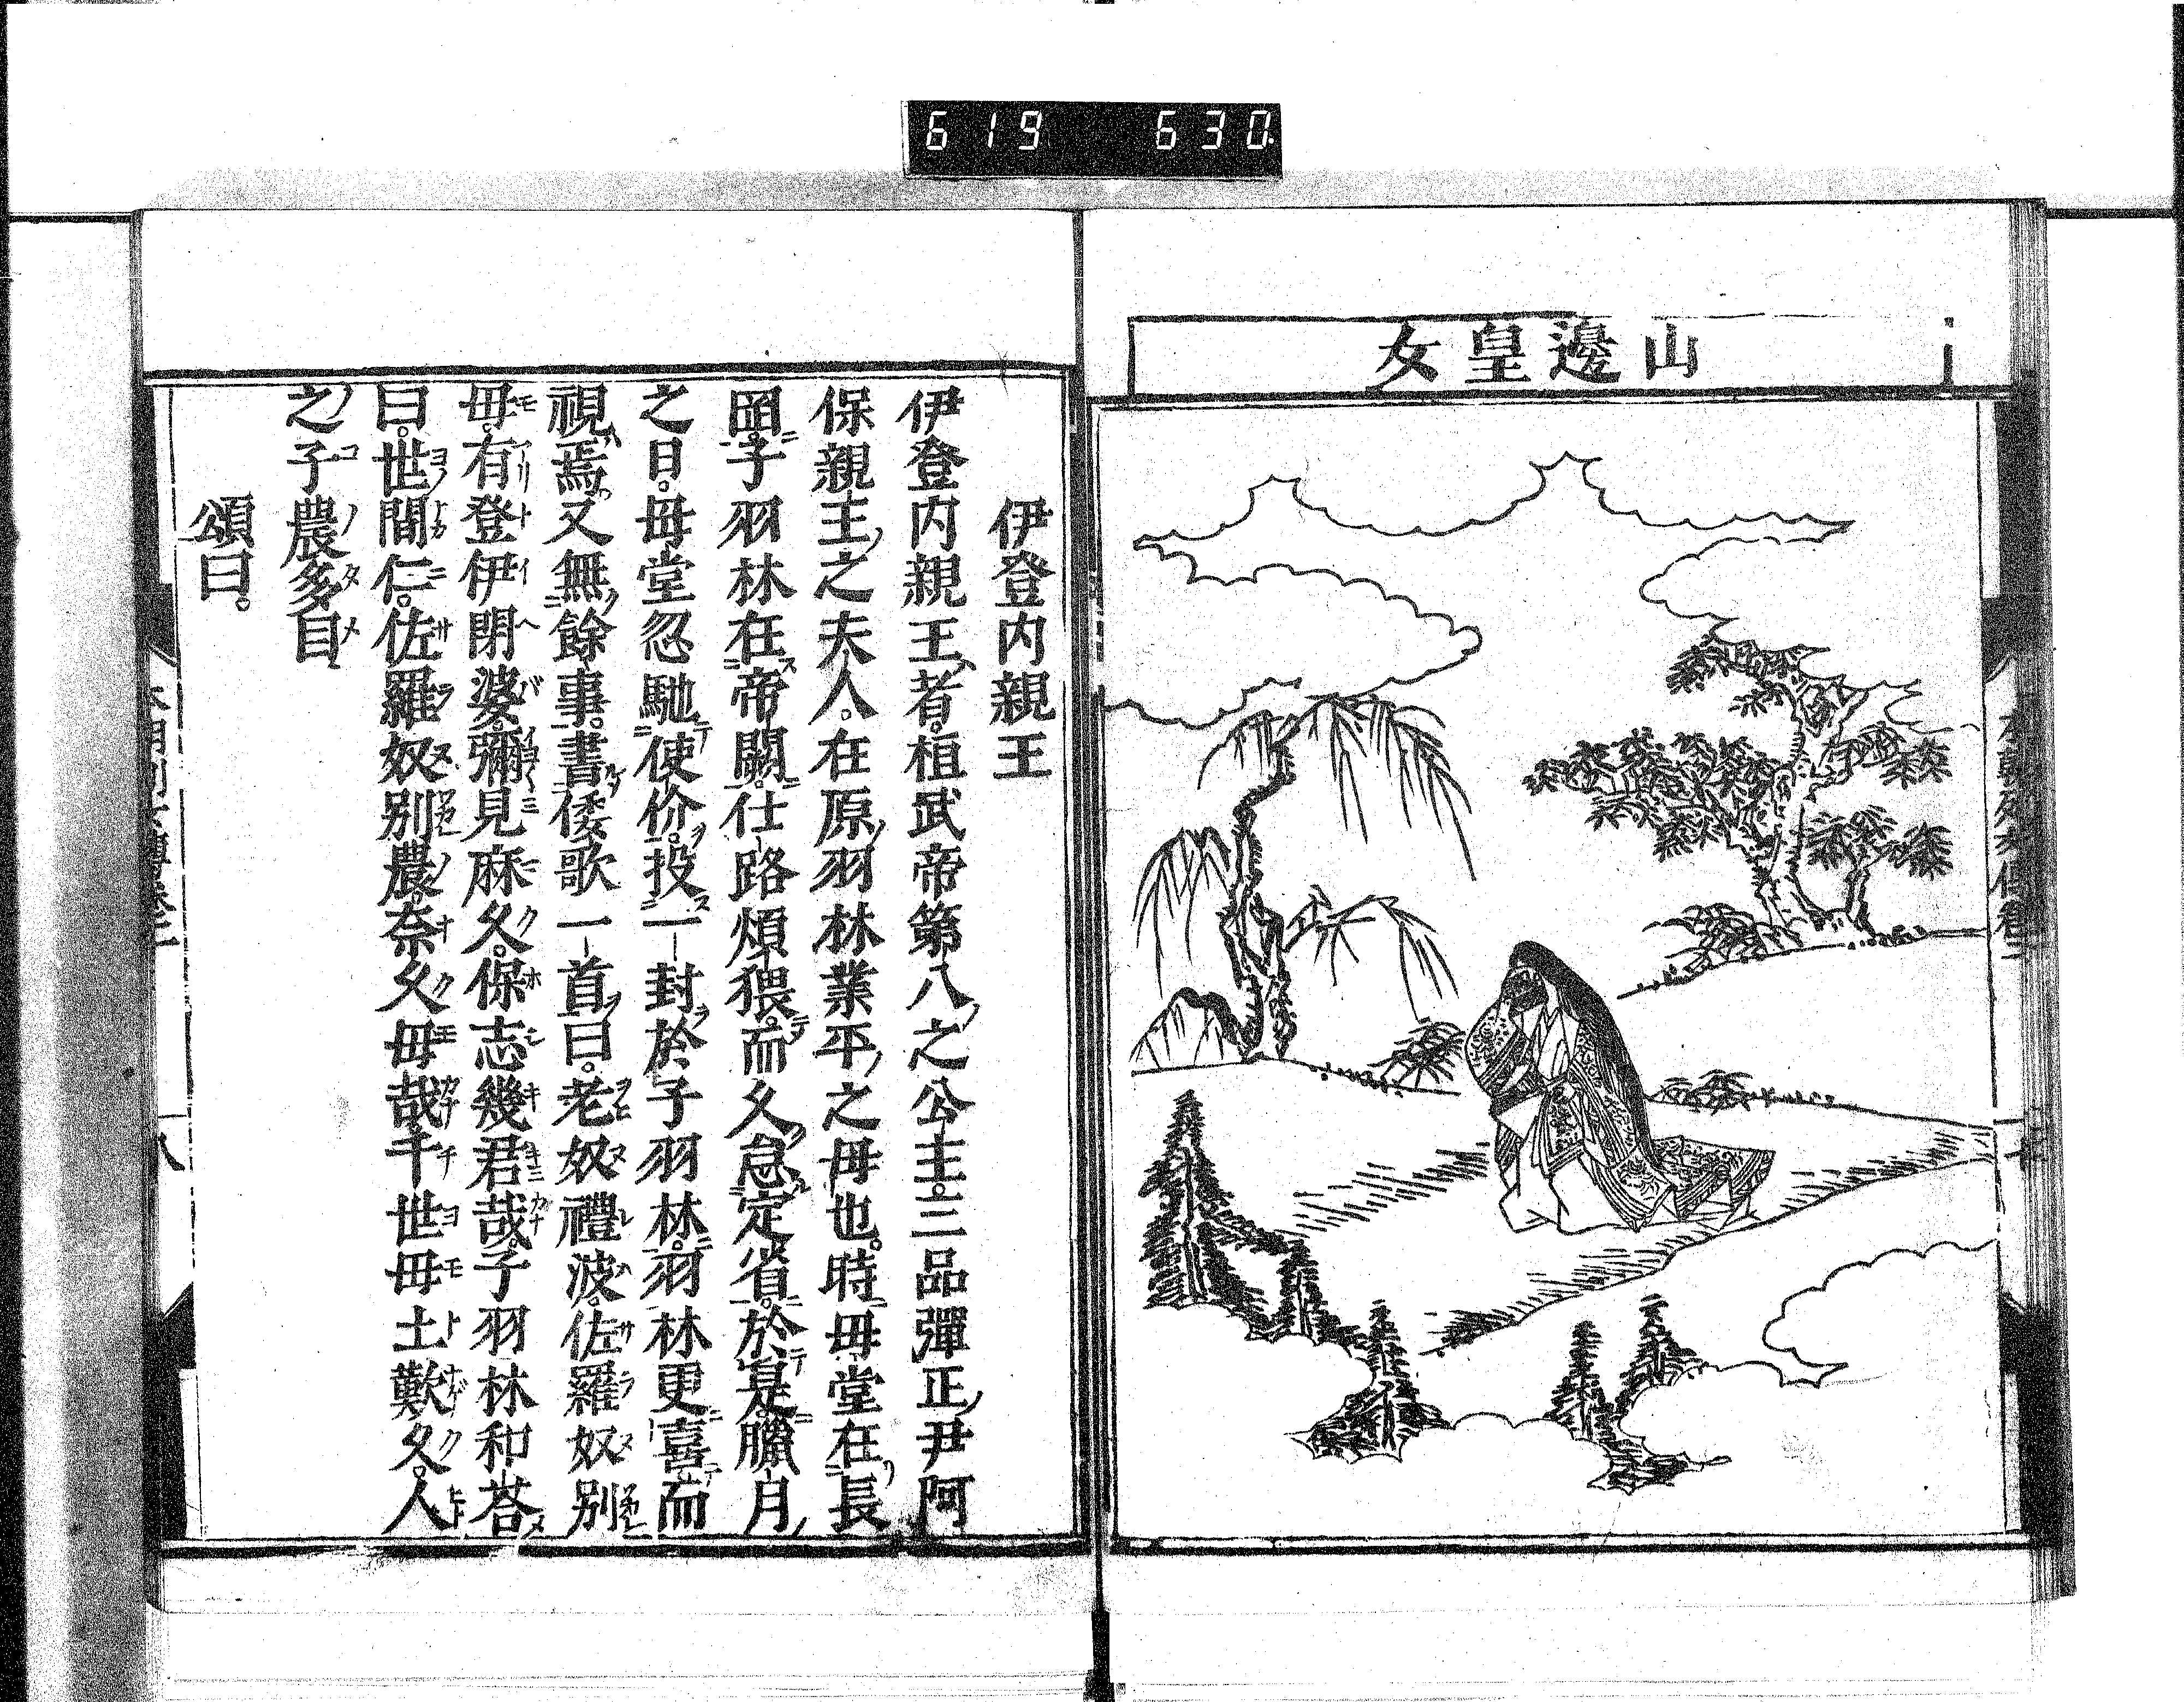 619 630
山邊皇女
伊登内親王
伊登内親王者。桓武帝第八之公主。三品彈正尹阿
保親王之夫人。在原羽林業平之母也。時母堂在長
岡。子羽林在帝闕。仕路煩猥。而久怠定省。於是。臘月
之日。母堂忽馳使价。投一封於子羽林。羽林更喜而
視焉。又無餘事。書倭歌一首曰。老奴禮波。佐羅奴別
毋。有登伊閉婆。彌見麻久。保志幾君哉。子羽林和荅
曰。世間仁。佐羅奴別農。奈久毋哉。千世毋土歎久。人
之子農多目
頌曰。
八